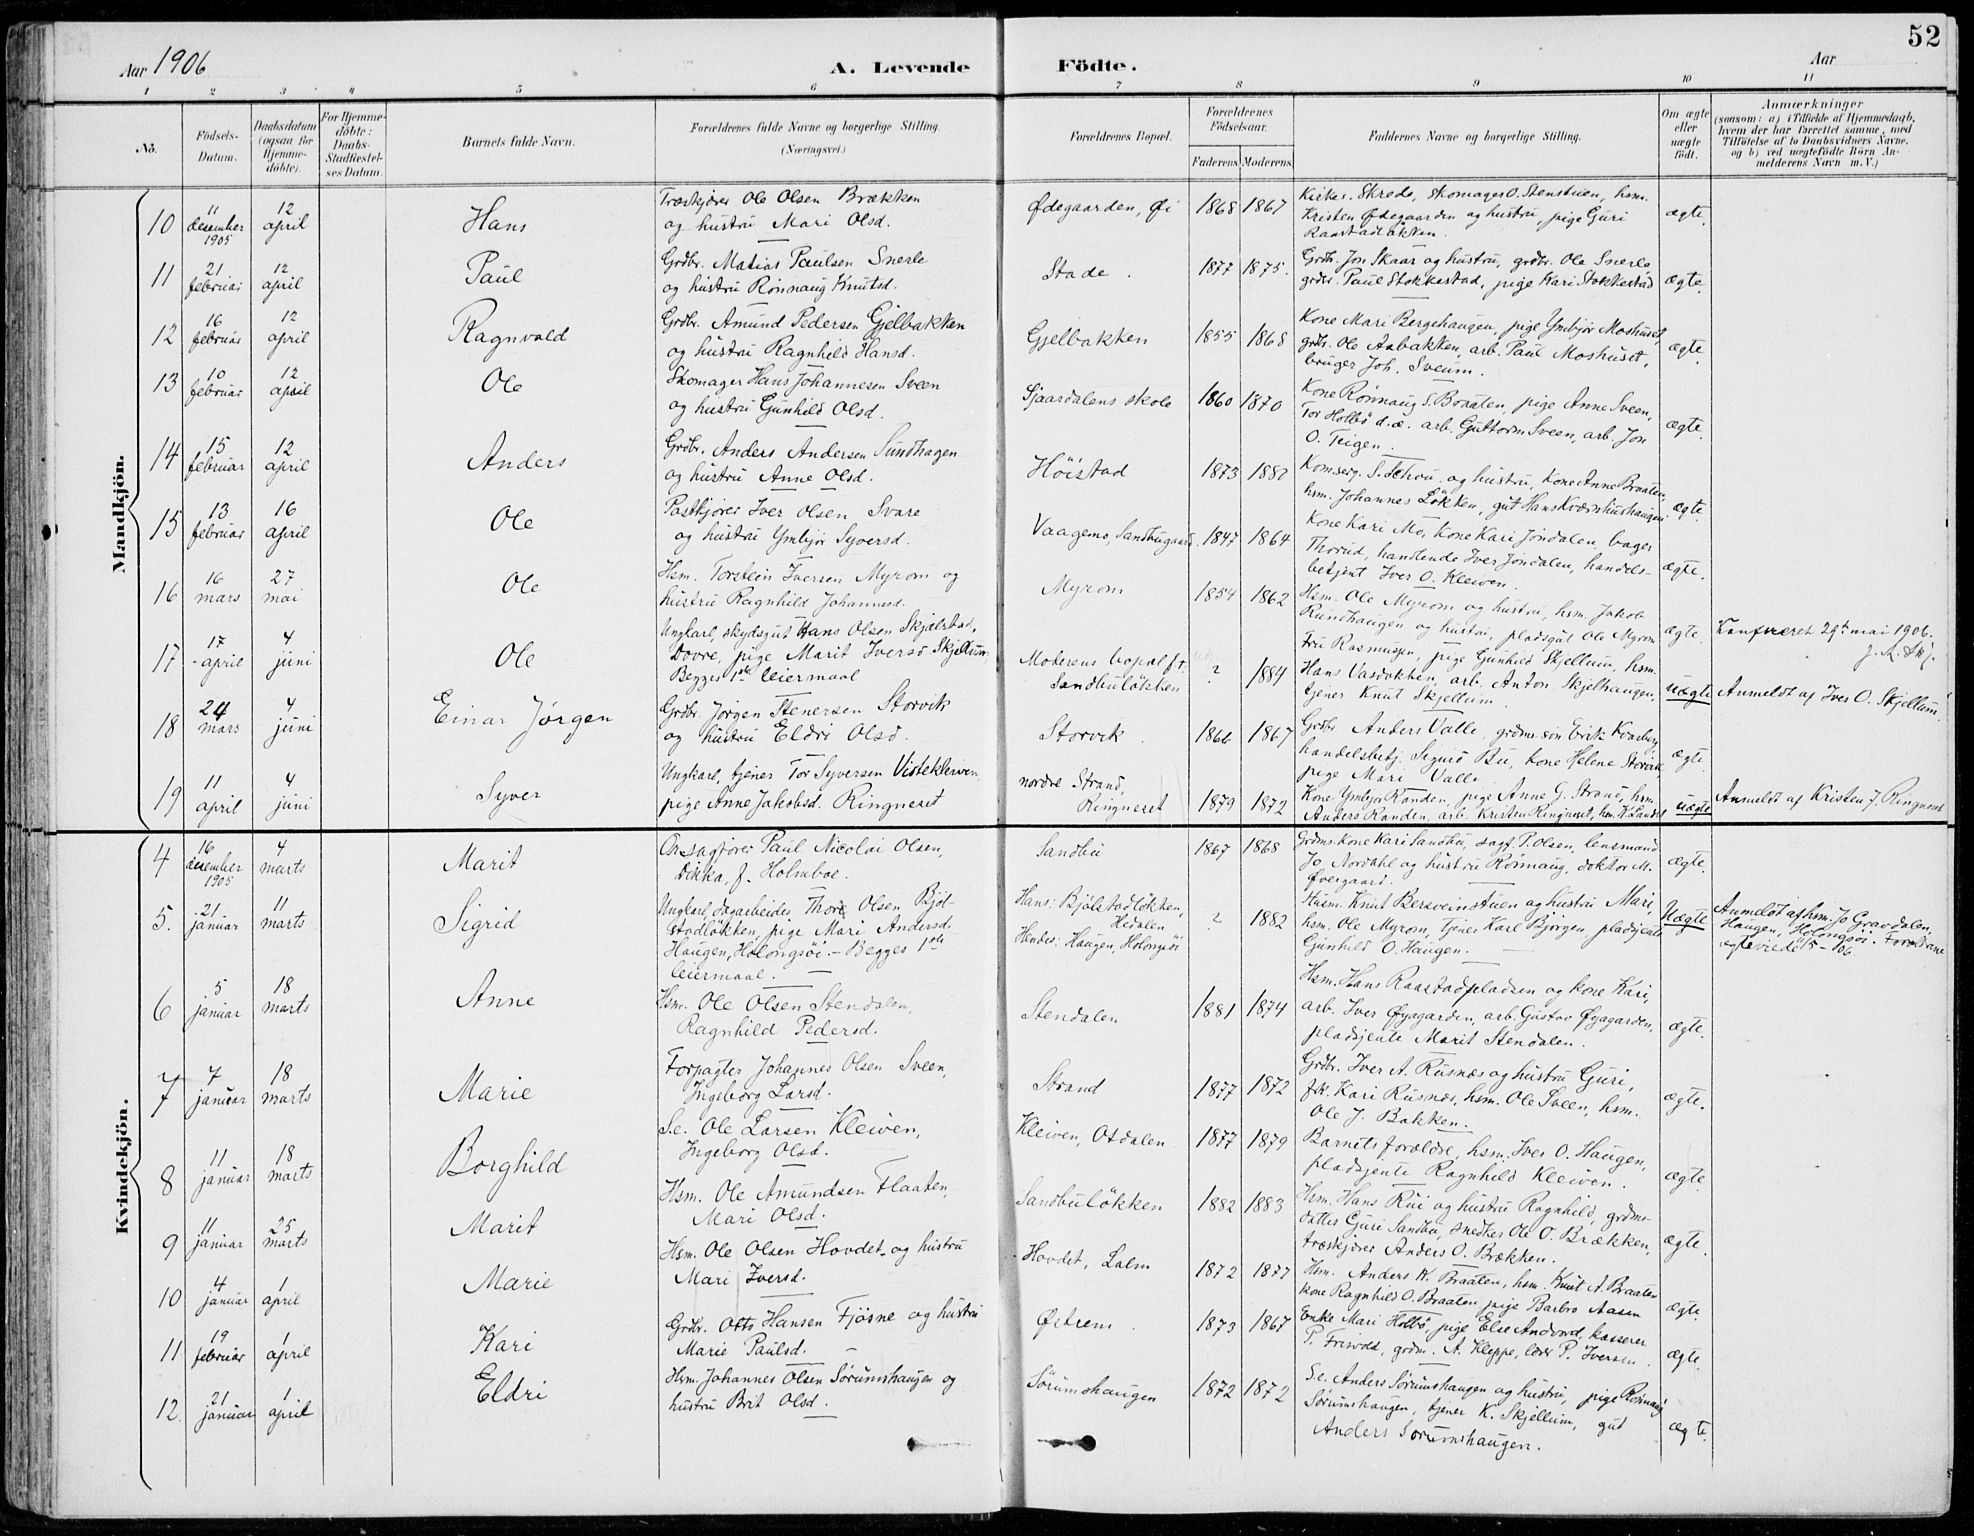 52
Aar 1906
A. Levende Födte.
Aar
1 2 3 4 5 6 7 8 9 10 11
No.
Födsels-Datum.
Daabsdatum (ogsaa for Hjemme-döbte).
For Hjemme-döbte: Daabs-Stadfæstel-ses Datum.
Barnets fulde Navn.
Forældrenes fulde Navne og borgerlige Stilling. (Næringsvei.)
Forældrenes Bopæl.
Forældrenes Födselsaar.
Faderens. Moderens.
Faddernes Navne og borgerlige Stilling.
Om ægte eller uægte födt.
Anmærkninger
(saasom: a) i Tilfælde af Hjemmedaab,
hvem der har forrettet samme, med
Tilföielse af to Daabsvidners Navne,
og b) ved uægtefödte Börn An-
melderens Navn m. V.)
Mandkjön.
10 11 desember 1905 12 april Hans
Træskjærer Ole Olsen Brækken
og hustru Mari Olsd.
Ødegaarden, Øi 1868 1867
Kirkes. Skrede, skomager O. Stenstuen, hsm.
Kristen Ødegaarden og hustru, pige Guri
Raastadbakken.
ægte.
11 21 februar 12 april Paul
Grdbr. Matias Paulsen Snerle
og hustru Rønnaug Knutsd.
Stade. 1877 1875.
Grdbr. Jon Skaar og hustru, grdbr. Ole Snerle
grdbr. Paul Stokkestad, pige Kari Stokkestad
ægte.
12 16 februar 12 april Ragnvald
Grdbr. Amund Pedersen Gjelbakken
og hustru Ragnhild Hansd.
Gjelbakken 1855 1868
Kone Mari Bergehaugen, pige Ymbjør Moshuset,
grdb. Ole Aabakken, arb. Paul Moshuset,
bruger Joh. Sveum.
ægte.
13 10 februar 12 april Ole
Skomager Hans Johannesen Sveen
og hustru Gunhild Olsd.
Sjaardalens skole 1860 1870
Kone Rønnaug S. Braaten, pige Anne Sveen,
Tor Holbø d.æ. arb. Guttorm Sveen, arb. Jon
O. Teigen.
ægte.
14 15 februar 12 april Anders
Grdbr. Anders Andersen Sundhagen
og hustru Anne Olsd.
Høistad 1873 1880
Komserg. S. Schou og hustru, Kone Anne Braaten,
hsm. Johannes Løkken, gut Hans Kværnhushaugen
ægte.
15 13 februar 16 april Ole
Postkjører Iver Olsen Svare
og hustru Ymbjør Syversd.
Vaagemo, Sandbugaard. 1847 1864
Kone Kari Mo, Kone Kari Jondalen, bager
Thorud, handlende Iver Jondalen, handels-
betjent Iver O. Kleiven.
ægte.
16 16 mars 27 mai Ole
Hsm. Torstein Iversen Myrom og
hustru Ragnhild Johannesd.
Myrom 1854 1862
Hsm. Ole Myrom og hustru, hsm. Jakob
Rundhaugen og hustru, pladsgut Ole Myrom
ægte.
Konfereret 29de mai 1906.
17 17 april 4 juni Ole
Ungkarl, skydsgut Hans Olsen Skjælstad,
Dovre, pige Marit Iversd Skjellum
Begges 1ste leiermaal
Moderens bopæl
Sandbuløkken
? 1884
Fru Rasmussen, pige Gunhild Skjellum, hsm.
Hans Vasdokken, arb. Anton Skjelhaugen,
tjener Knut Skjellum.
uægte
Anmeldt af Iver O. Skjellum.
18 24 mars 4 juni Einar Jørgen
Grdbr. Jørgen Stenersen Storvik
og hustru Eldri Olsd.
Storvik. 1866 1867
Grdbr Anders Valle, grdms. søn Erik Kvarberg,
handelsbetj. Sigurd Bu, kone Helene Storvik
pige Mari Valle
ægte.
19 11 april 4 juni Syver
Ungkarl, tjener Tor Syversen Visteklæven
pige Anne Jakobsd. Ringneset
nordre Strand,
Ringneset
1879 1872
Kone Ymbjør Randen, pige Anne G. Strand, hsm.
Anders Randen, arb. Kristen Ringneset, hsm. K. Sandet
uægte
Anmeldt af Kristen J. Ringneset
Kvindekjön.
4 16 desember 1905 4 marts Marit
Orsagfører Paul Nicolai Olsen,
Dikka, f. Holmboe.
Sandbu 1867 1868
Grdms. kone Kari Sandbu, sagf. P. Olsen, lensmand
Jo Nordahl og hustru Rønnaug, doktor M.
Øvergaard.
ægte.
5. 21 januar 11 marts Sigrid
Ungkarl, dagarbeider Thore Olsen Bjøl-
stadløkken, pige Mari Andersd.
Haugen, Holongsøi. – Begges 1ste
leiermaal.
Hans: Bjølstadløkken,
Hidalen
Hendes: Haugen, Holongsøi
? 1882
Husm. Knut Bersveinstuen og hustru Mari,
hsm. Ole Myrom, tjener Karl Bjørgen, pladsjente
Gunhild O. Haugen.
Uægte
Anmeldt af hsm. Jo Gravdalen,
Haugen, Holongsøi. Forældrene
6 5 januar 18 marts Anne
Hsm. Ole Olsen Stendalen,
Ragnhild Pedersd.
Stendalen 1881 1874
Hsm. Hans Raastadpladsen og kone Kari,
arb. Iver Øyagarden, arb. Gustav Øyagarden,
pladsjente Marit Stendalen.
ægte.
7 7 januar 18 marts Marie
Forpagter Johannes Olsen Sveen,
Ingeborg Larsd.
Strand 1877 1872
Grdbr. Iver A. Rusnes og hustru Guri,
frk. Kari Rusnes, hsm. Ole Sveen, hsm.
Ole J. Bakken.
ægte.
8 11 januar 18 marts Borghild
S.e. Ole Larsen Kleiven,
Ingeborg Olsd.
Kleiven, Otdalen 1877 1879
Barnets forældre, hsm. Iver O. Haugen,
pladsjente Ragnhild Kleiven.
ægte.
9 11 januar 25 marts Marit
Hsm. Ole Amundsen Flaaten,
Mari Olsd.
Sandbuløkken 1882 1883
Hsm. Hans Rui og hustru Ragnhild, grdms-
datter Guri Sandbu, snedker Ole O. Brækken,
træskjærer Anders O. Brækken.
ægte.
10 4 januar 1 april Marie
Hsm. Ole Olsen Hovdet, og hustru
Mari Iversd.
Hovdet, Lalm 1872 1877
Hsm. Anders K. Braaten, hsm. Knut A. Braaten
kone Ragnhild O. Braaten pige Barbro Aasen
ægte.
11 19 februar 1 april Kari
Grdbr. Otto Hansen Fjøsne og hustru
Marie Paulsd.
Østrem. 1873 1867
Enke Mari Holbø, pige Else Andvord, kasserer
P. Frisvold, grdm. A. Kleppe, lærer P. Iversen.
ægte.
12. 21 januar 1 april Eldri
Hsm. Johannes Olsen Sørumshaugen og
hustru Brit Olsd.
Sørumshaugen 1872 1872
S.e. Anders Sørumshaugen og hustru, pige Rønnaug
Sørumshaugen, tjener K. Skjellum, gut
Anders Sørumshaugen.
ægte.